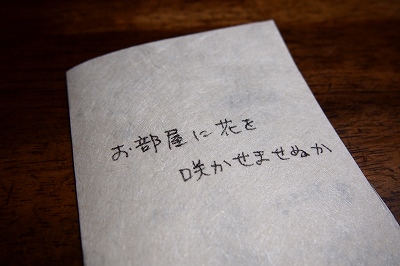 お部屋に花を
咲かせませぬか